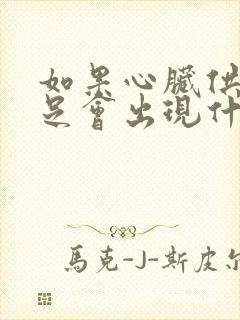 如果心臟供
足會出現什
馬克-J-斯皮尔